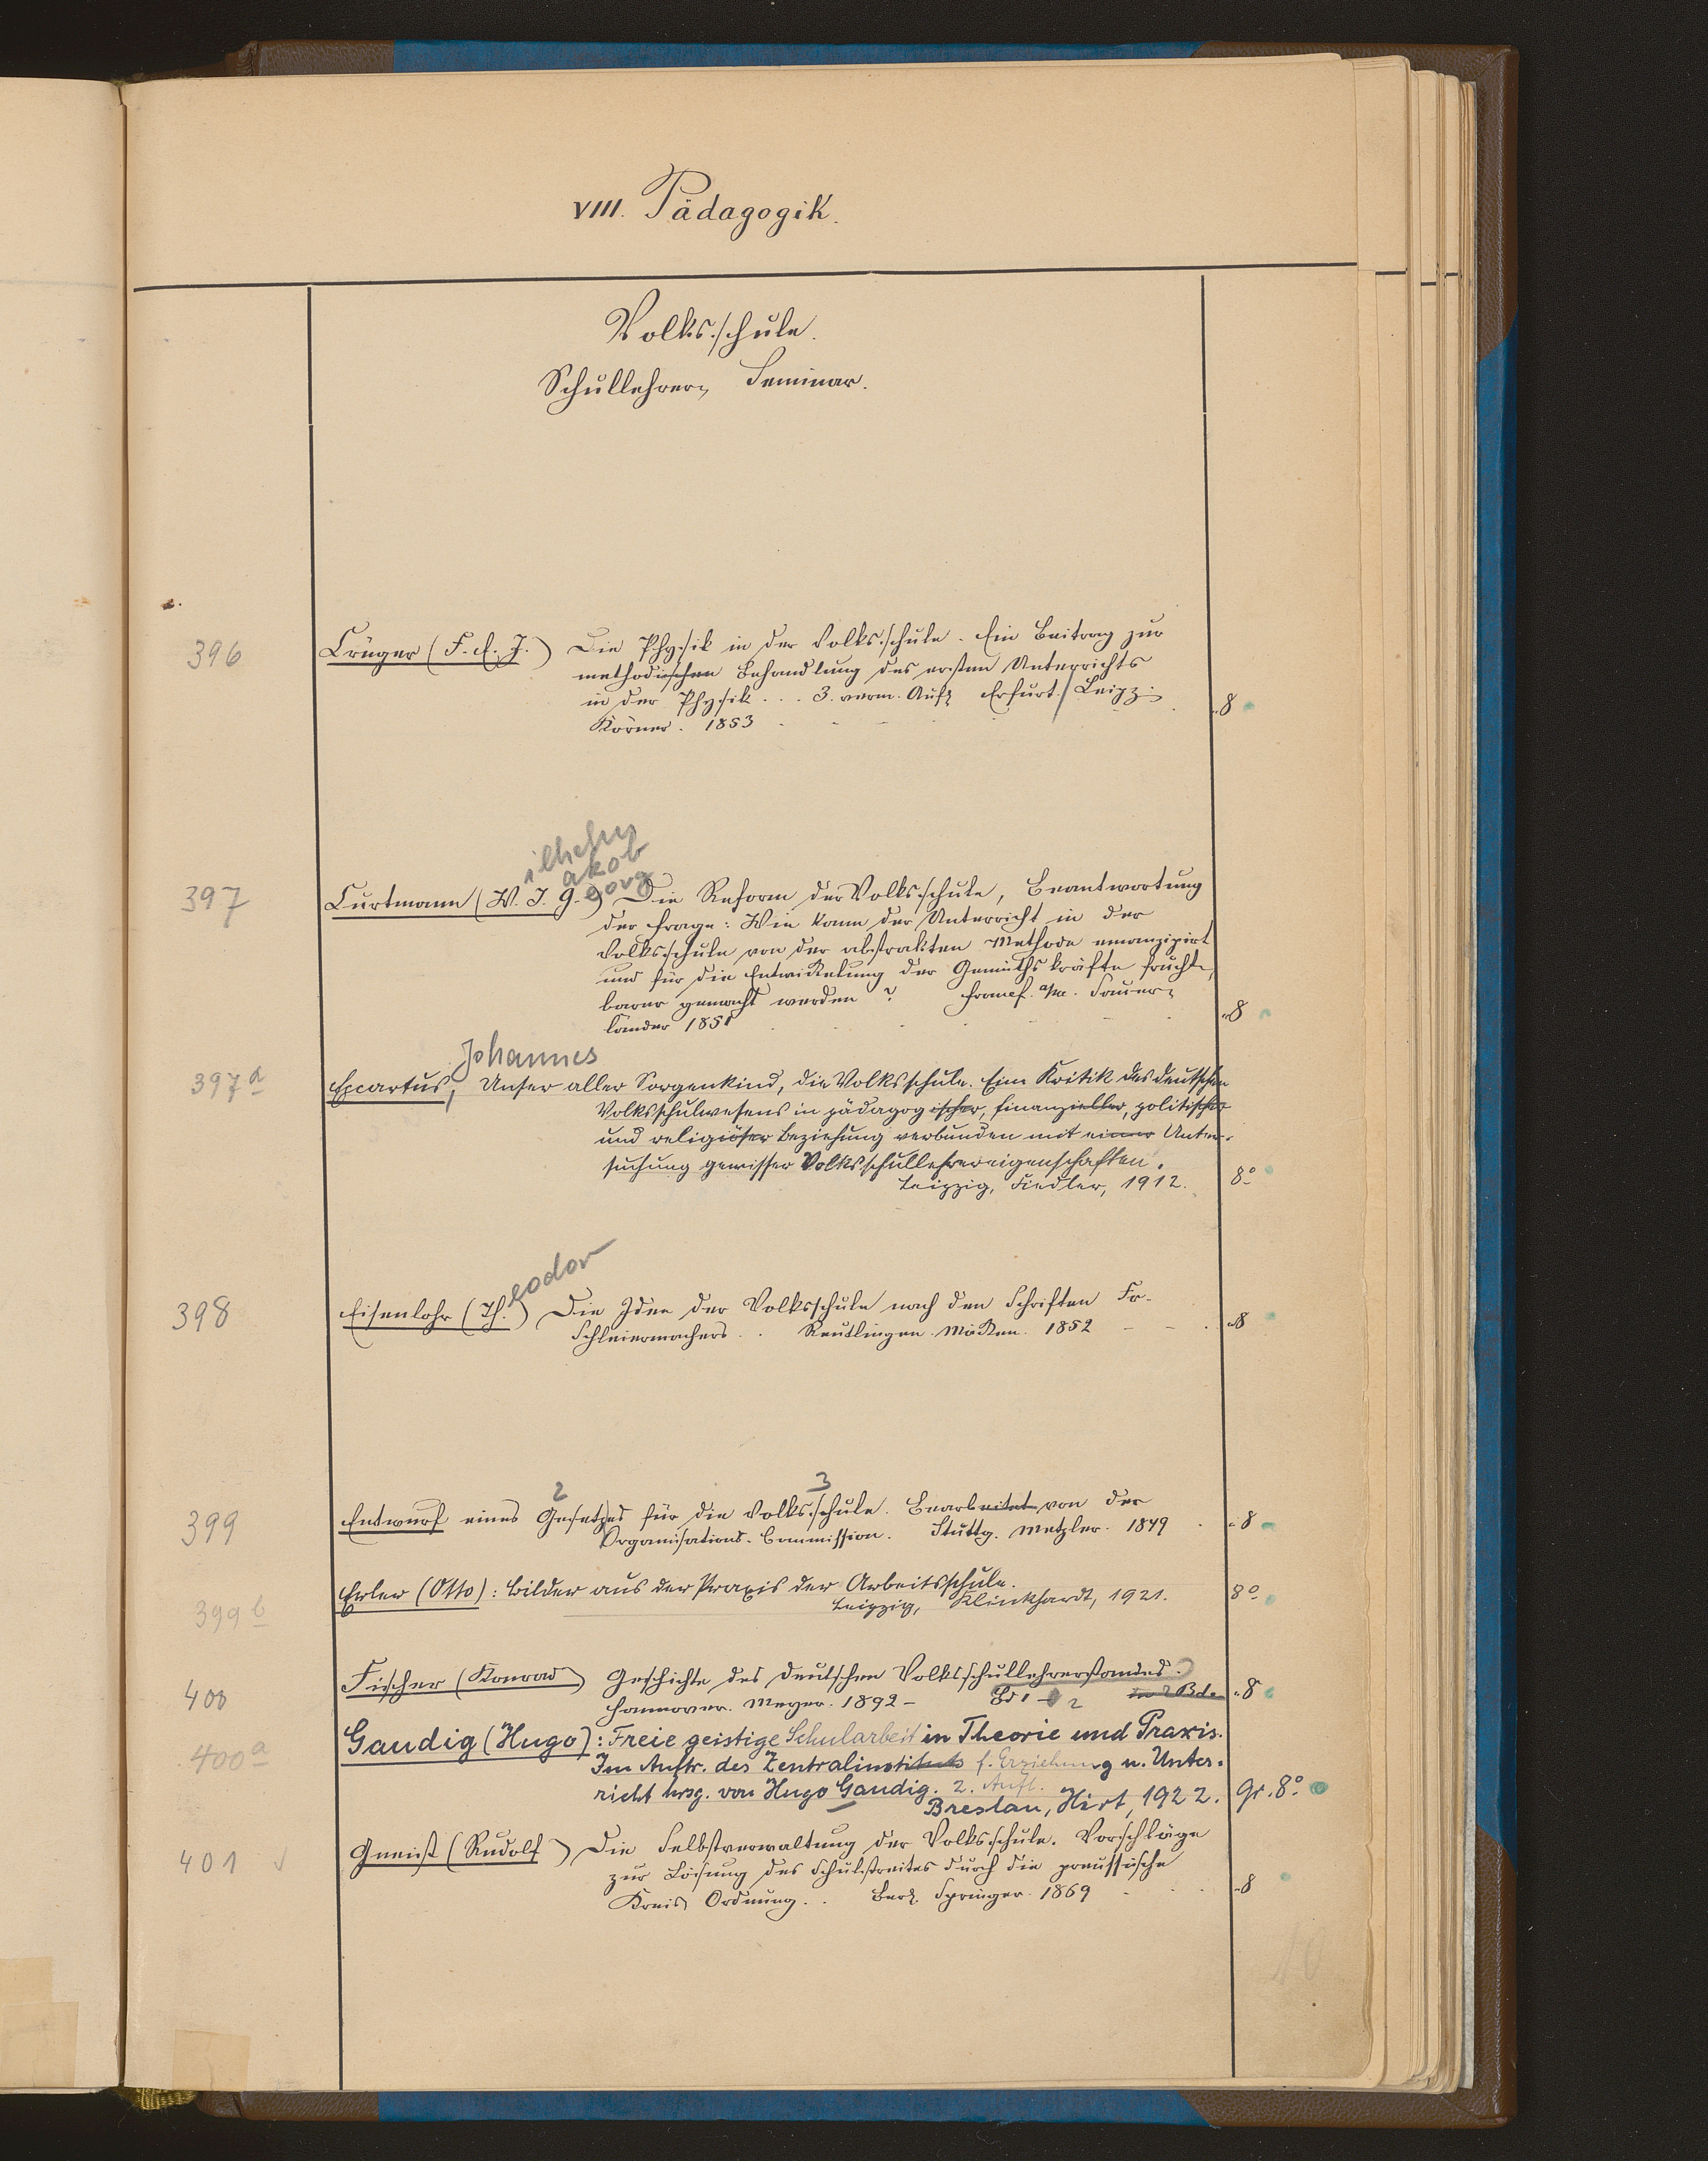 VIII. Pädagogik.
Volksschule.
Schullehrer, Seminar.
396 Crüger (F. E. J.) Die Physik in der Volksschule. Ein Beitrag zur
methodischen Behandlung des ersten Unterrichts
in der Physik... 3. verm. Aufl. Erfurt / Leipz.
Körner. 1853 8
ilhelm
akob
eorg
397 Curtmann (W. J. G.) Die Reform der Volksschule, Beantwortung
der Frage: Wie kann der Unterricht in der
Volksschule von der abstrakten Methode emanzipirt
und für die Entwickelung der Gemüthskräfte frucht-
barer gemacht werden? Frankf. a/M. Sauer-
länder 1851 8
Johannes
397a Excartus, Unser aller Sorgenkind, die Volksschule. Eine Kritik des deutschen
Volksschulwesens in pädagogischer, finanzieller, politischer
und religiöser Beziehung verbunden mit einer Unter-
suchung gewisser Volksschullehrereigenschaften.
Leipzig, Fiedler, 1912. 8°
eodor
398 Eisenlohr (Th.) Die Idee der Volksschule nach den Schriften Fr.
Schleiermachers.. Reutlingen. Mäcken. 1852 8
2 3
399 Entwurf eines Gesetzes für die Volksschule. Bearbeitet von der
Organisations-Commission. Stuttg. Metzler. 1849 8
399b Erler (Otto): Bilder aus der Praxis der Arbeitsschule.
Leipzig, Klinkhardt, 1921. 8°
400 Fischer (Konrad) Geschichte des deutschen Volksschullehrerstandes.
Hannover. Meyer. 1892 - Bd 1-2 in 2 Bde. 8
400a Gaudig (Hugo): Freie geistige Schularbeit in Theorie und Praxis.
Im Auftr. des Zentralinstituts f. Erziehung u. Unter-
richt hrsg. von Hugo Gaudig. 2. Aufl.
Breslau, Hirt, 1922. gr. 8°
401 Gneist (Rudolf) Die Selbstverwaltung der Volksschule. Vorschläge
zur Lösung des Schulstreites durch die preussische
Kreis Ordnung.. Berl. Springer. 1869 8